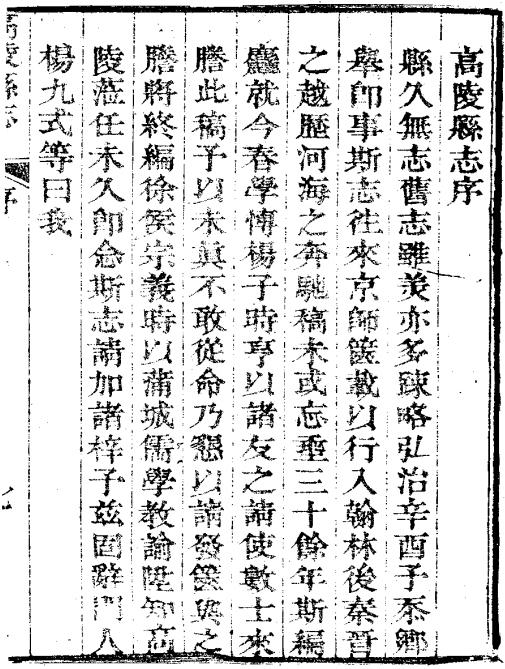 高陵縣志序
縣久無志舊志雖美亦多踈略弘治辛酉予忝鄉
舉即事斯志往來京師篋載以行入翰林後秦晉
之越歷河海之奔馳稿未或忘垂三十餘年斯編
麤就今春學博楊子時亨以諸友之請使數士來
謄此稿予以未眞不敢從命乃懇以請發篋與之
謄將終編徐侯宗義時以蒲城儒學教諭陞知高
陵蒞任未久即念斯志請加諸梓予玆固辭門人
楊九式等曰我
高陵縣志
序